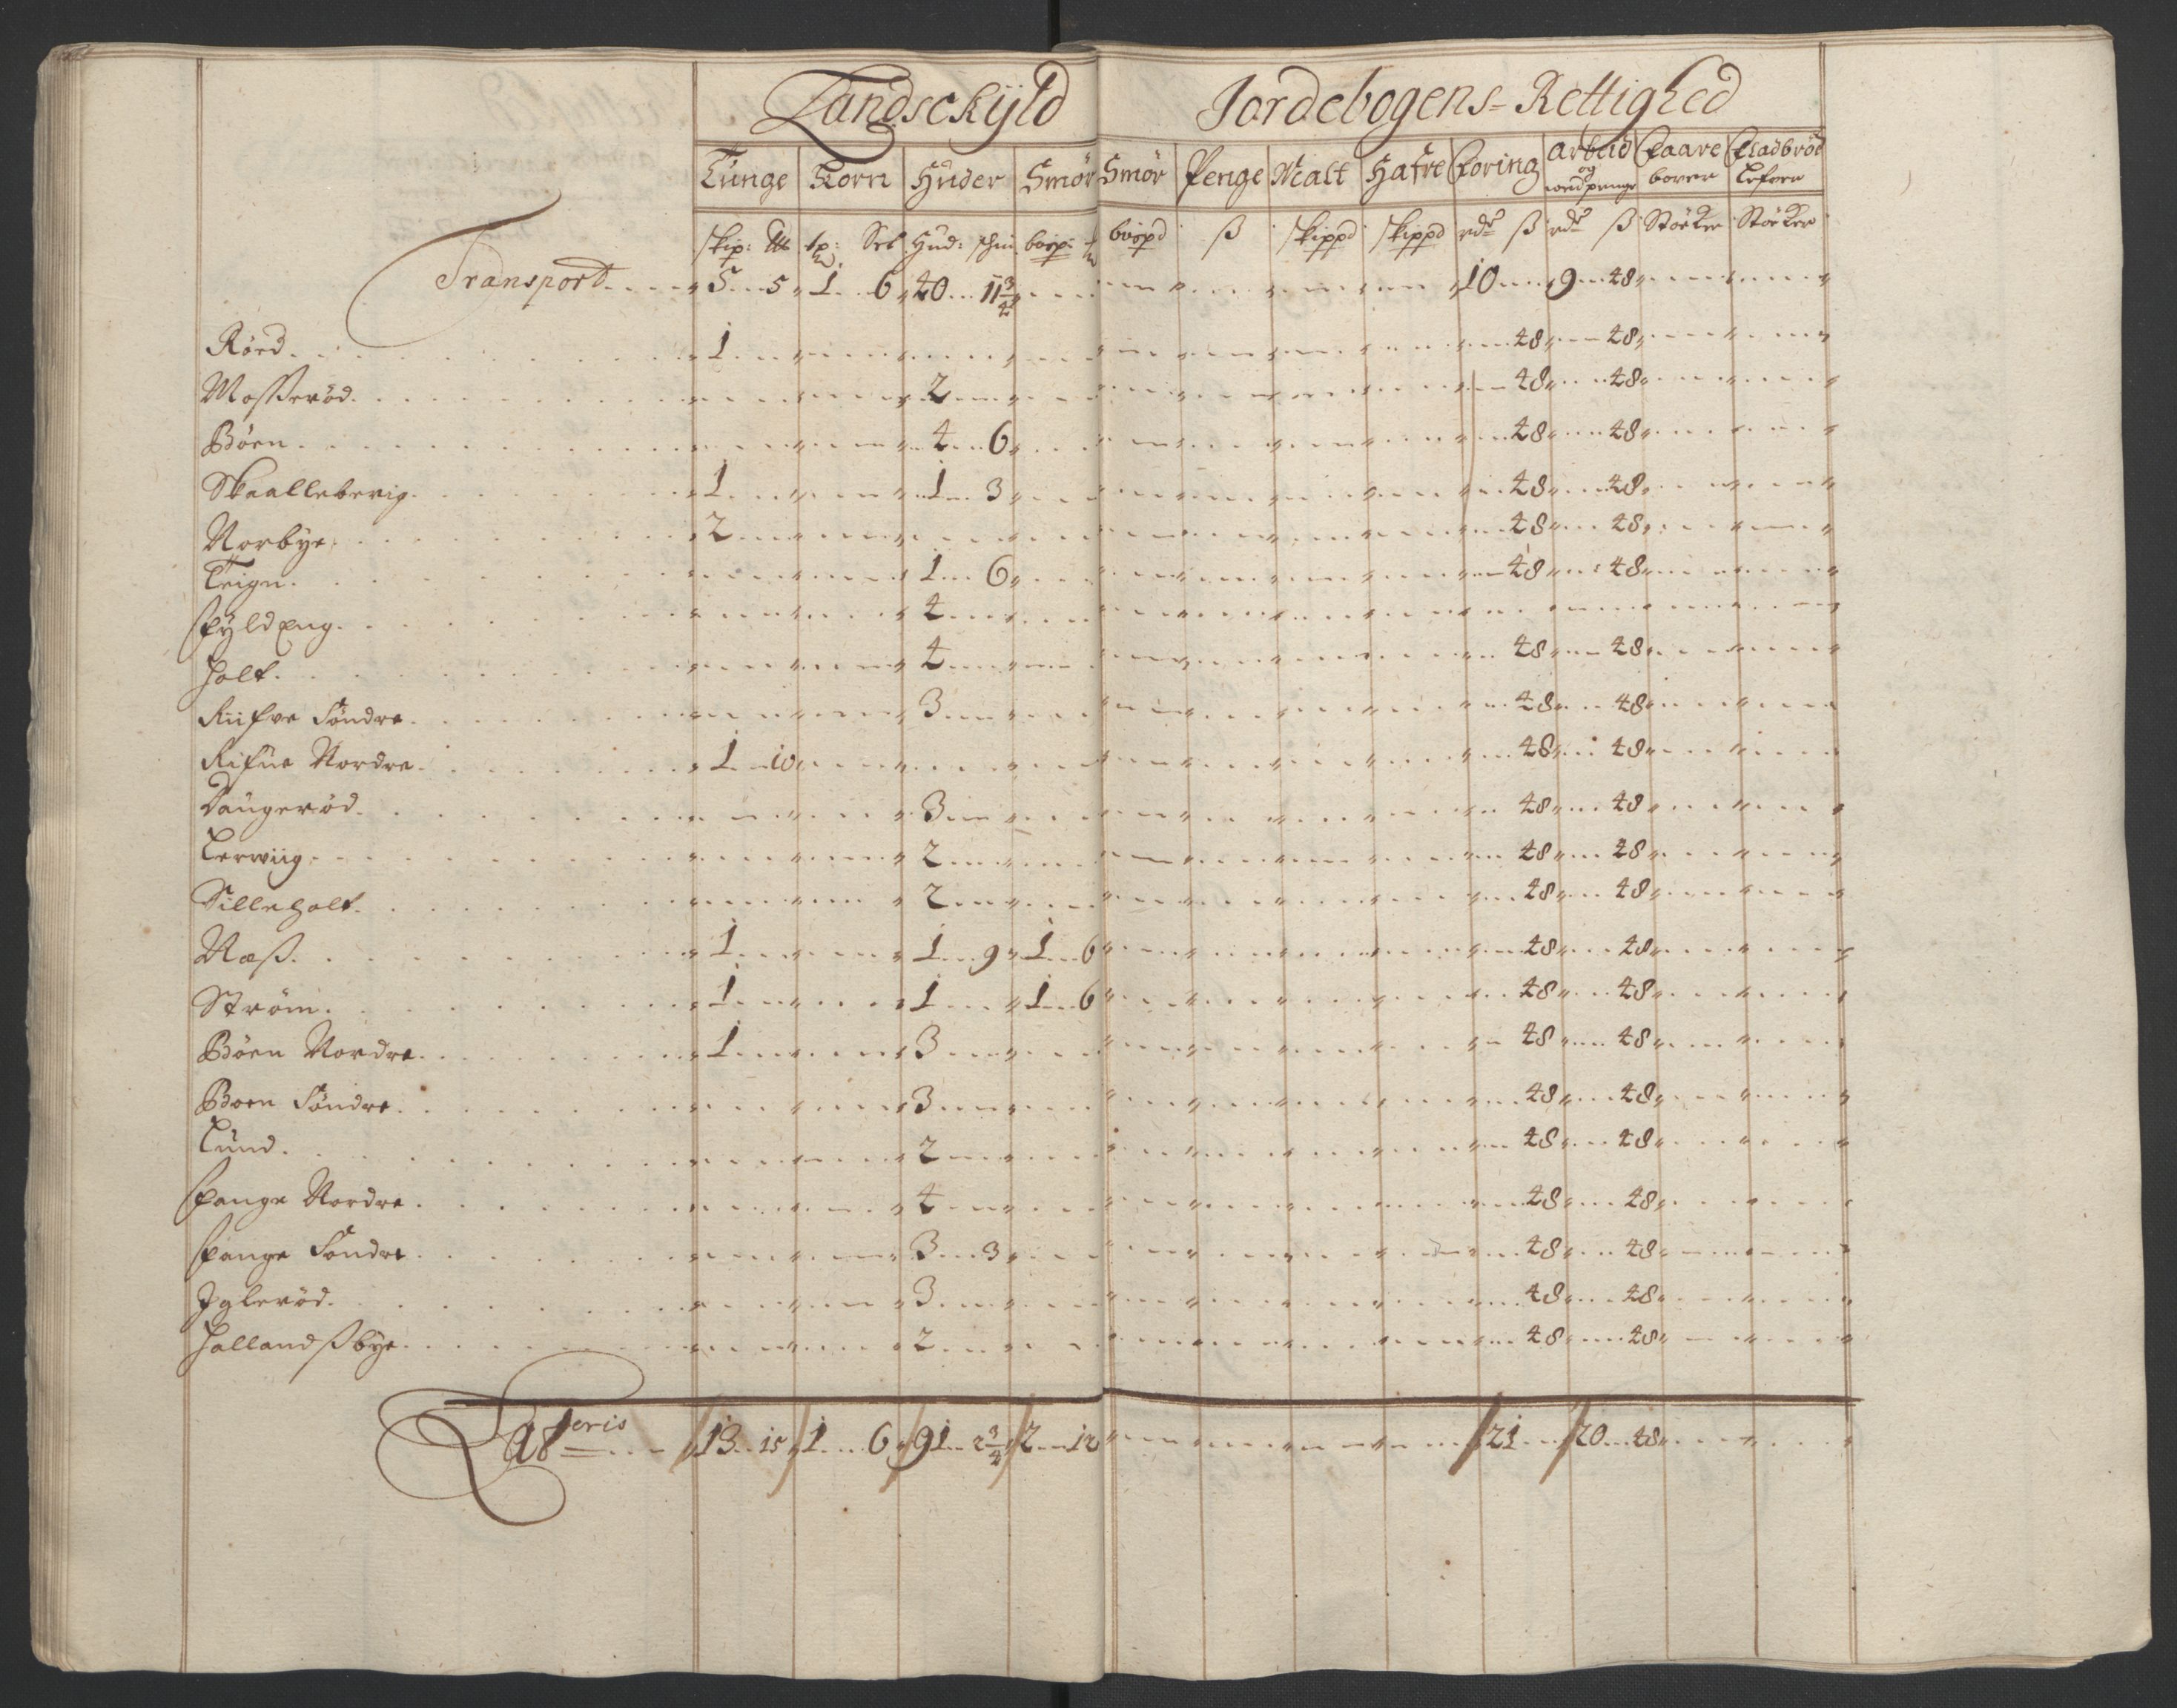 Landschÿld Jordebogens-Rettighed
Tunge Korn Huder Smør Smør Penge Malt Hafre Foring Arbeid og wedpenge Faare bover Fladbrød Lefver
skip: Lis: Sel Hud: schin bospd ß skippd skippd rdr ß rdr ß Støcker Støcker
Transport 5 5 1 6 40 11¾ 10 9 48
Röed 1 48 48
Mosseröd 2 48 48
Böen 4 6 48 48
Skaallebevig 1 1 3 48 48
Norbye 2 48 48
Teign 1 6 48 48
Fyldeng 4
Holt 4 48 48
Riifve Söndre 3 48 48
Rifue Nordre 1 10 48 48
Daugeröd 3 48 48
Lerwiig 2 48 48
Silleholt 2 48 48
Næß 1 1 9 1 6 48 48
Ström 1 1 1 6 48 48
Böen Nordre 1 3 48 48
Boen Söndre 3 48 48
Lund 2 48 48
Fange Nordre 4 48 48
Fange Söndre 3 3 48 48
Igleröd 3 48 48
Hallandsßbye 2 48 48
Lateris 13 15 1 6 91 2¾ 2 12 21 20 48